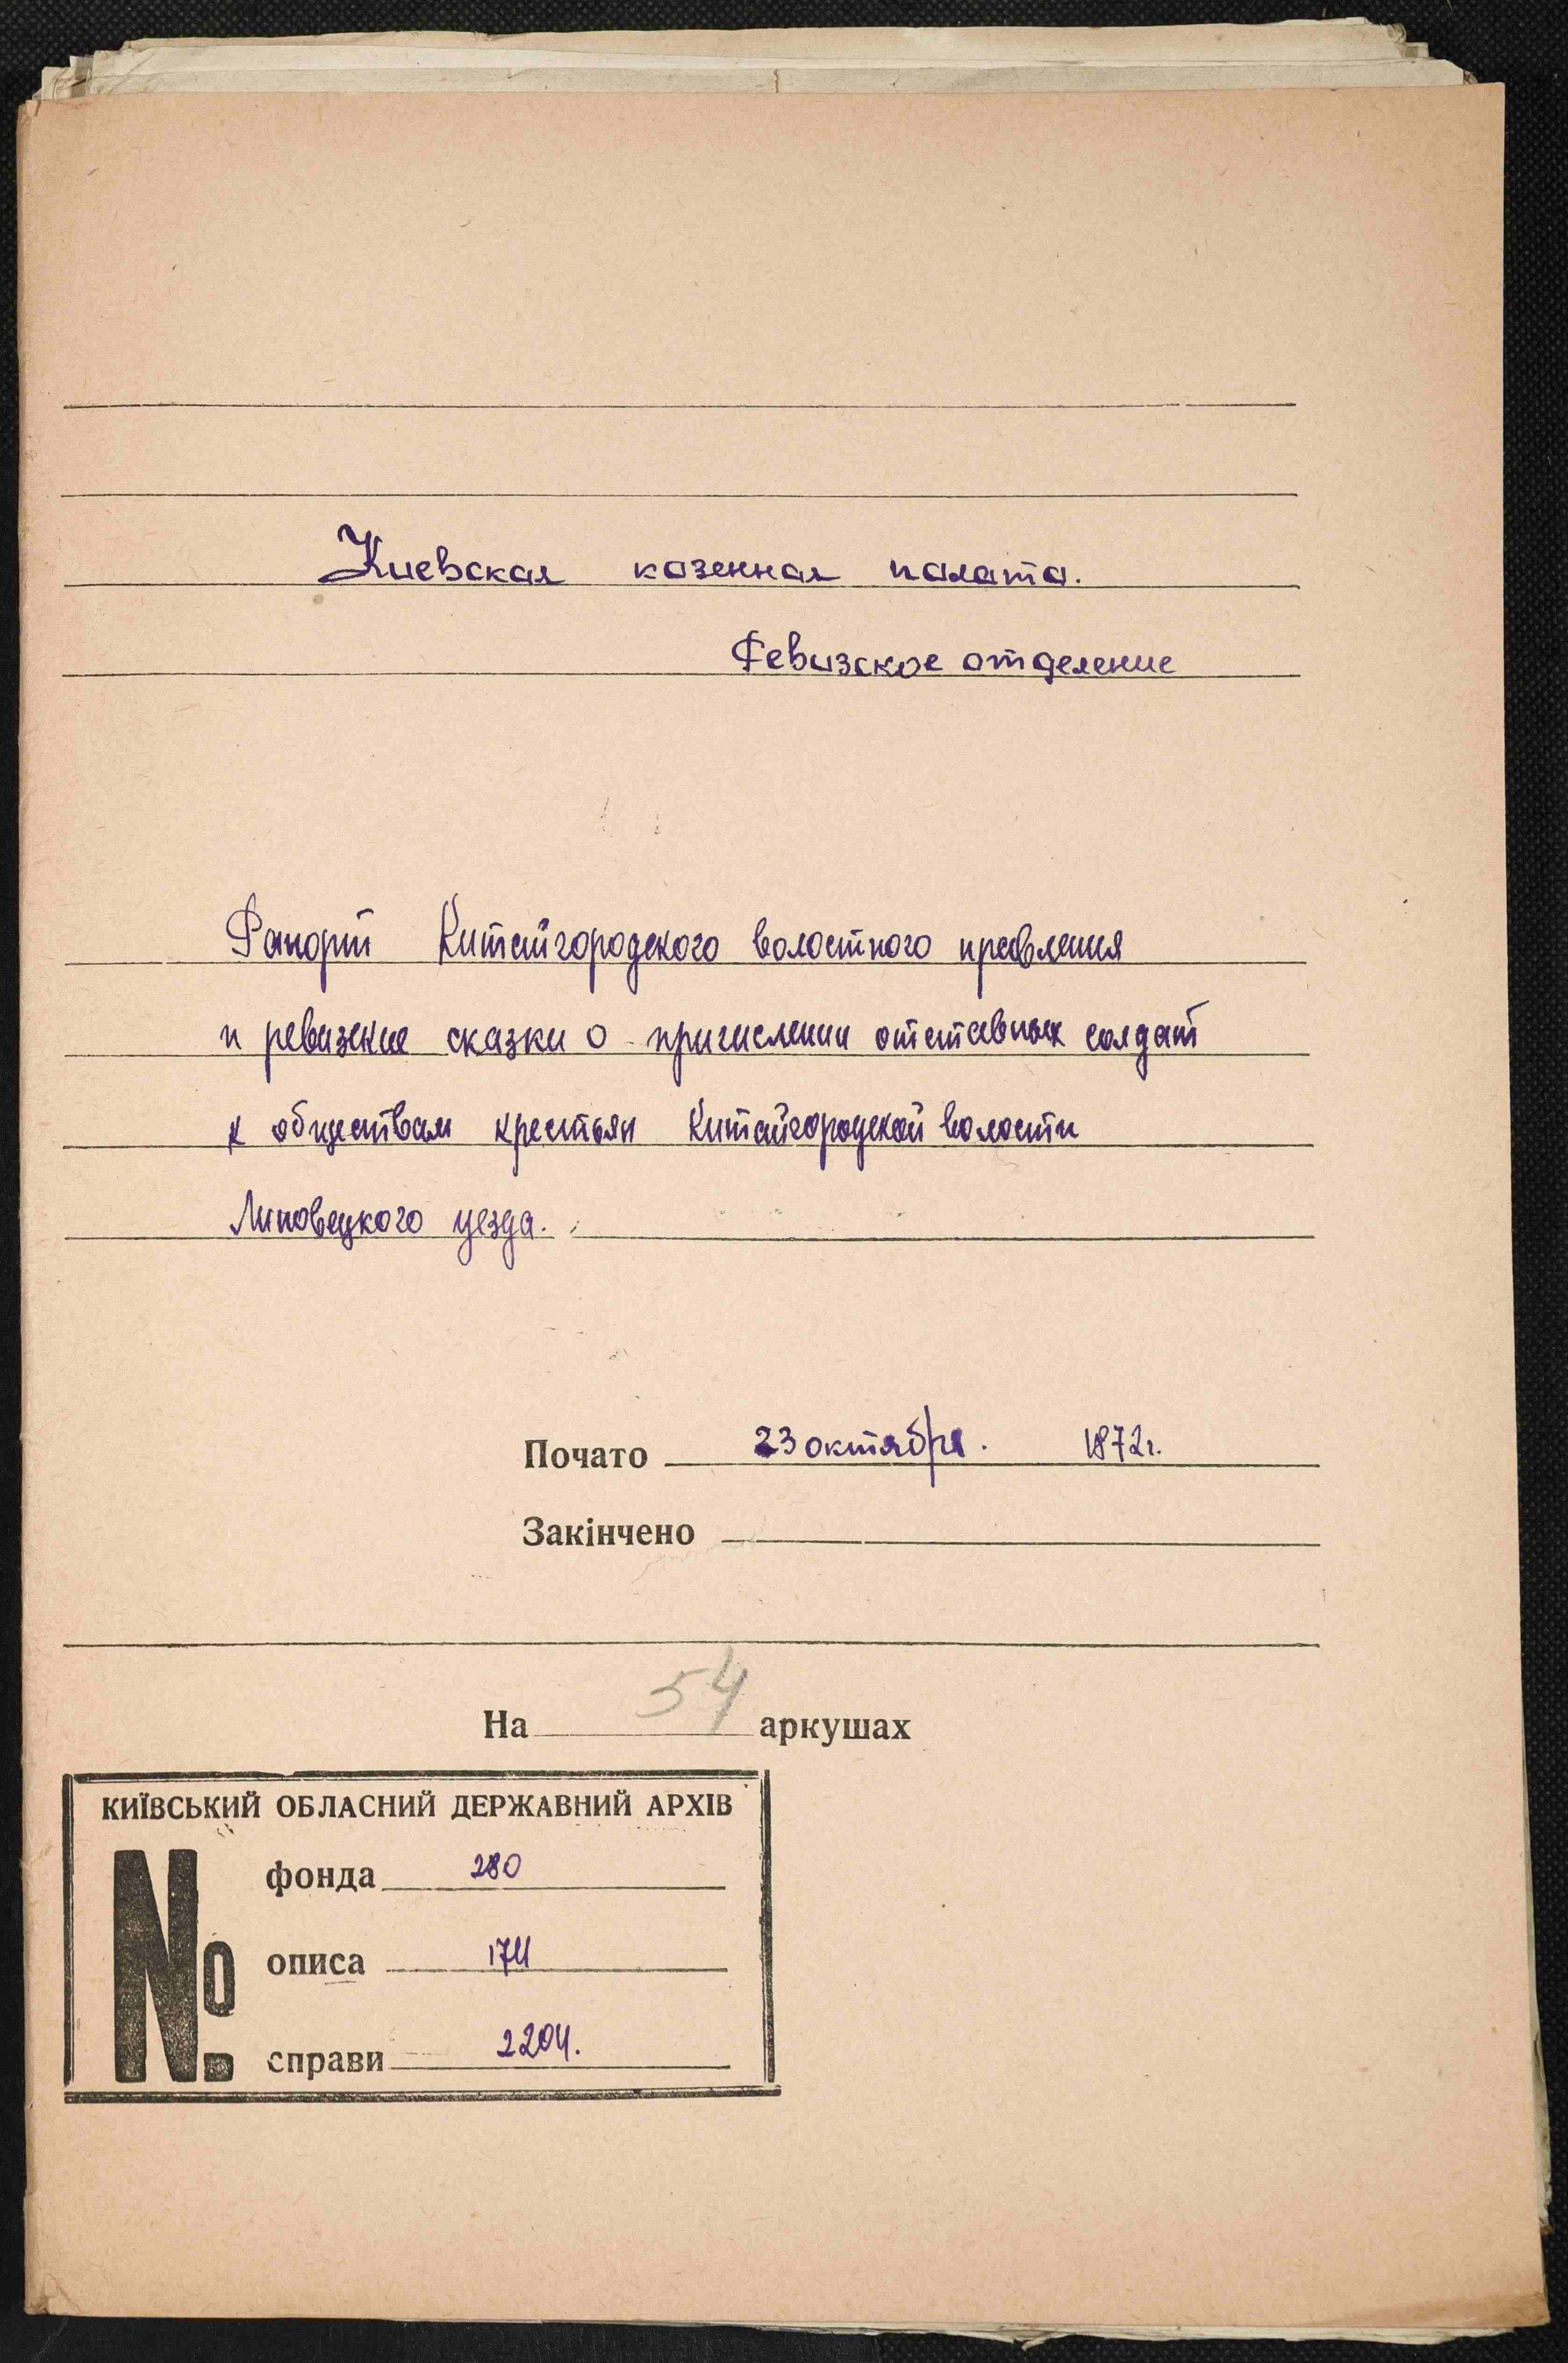 Киевская казенная палата.
Ревизское отделение
Рапорт Китайгородского волостного правления
и ревизские сказки о причислении отставных солдат
к обществам крестьян Китайгородской волости
Липовецкого уезда.
Почато 23 октября. 1872г.
Закінчено
На 54 аркушах
КИЇВСЬКИЙ ОБЛАСНИЙ ДЕРЖАВНИЙ АРХІВ
№
фонда 280
описа 174
справи 2204.